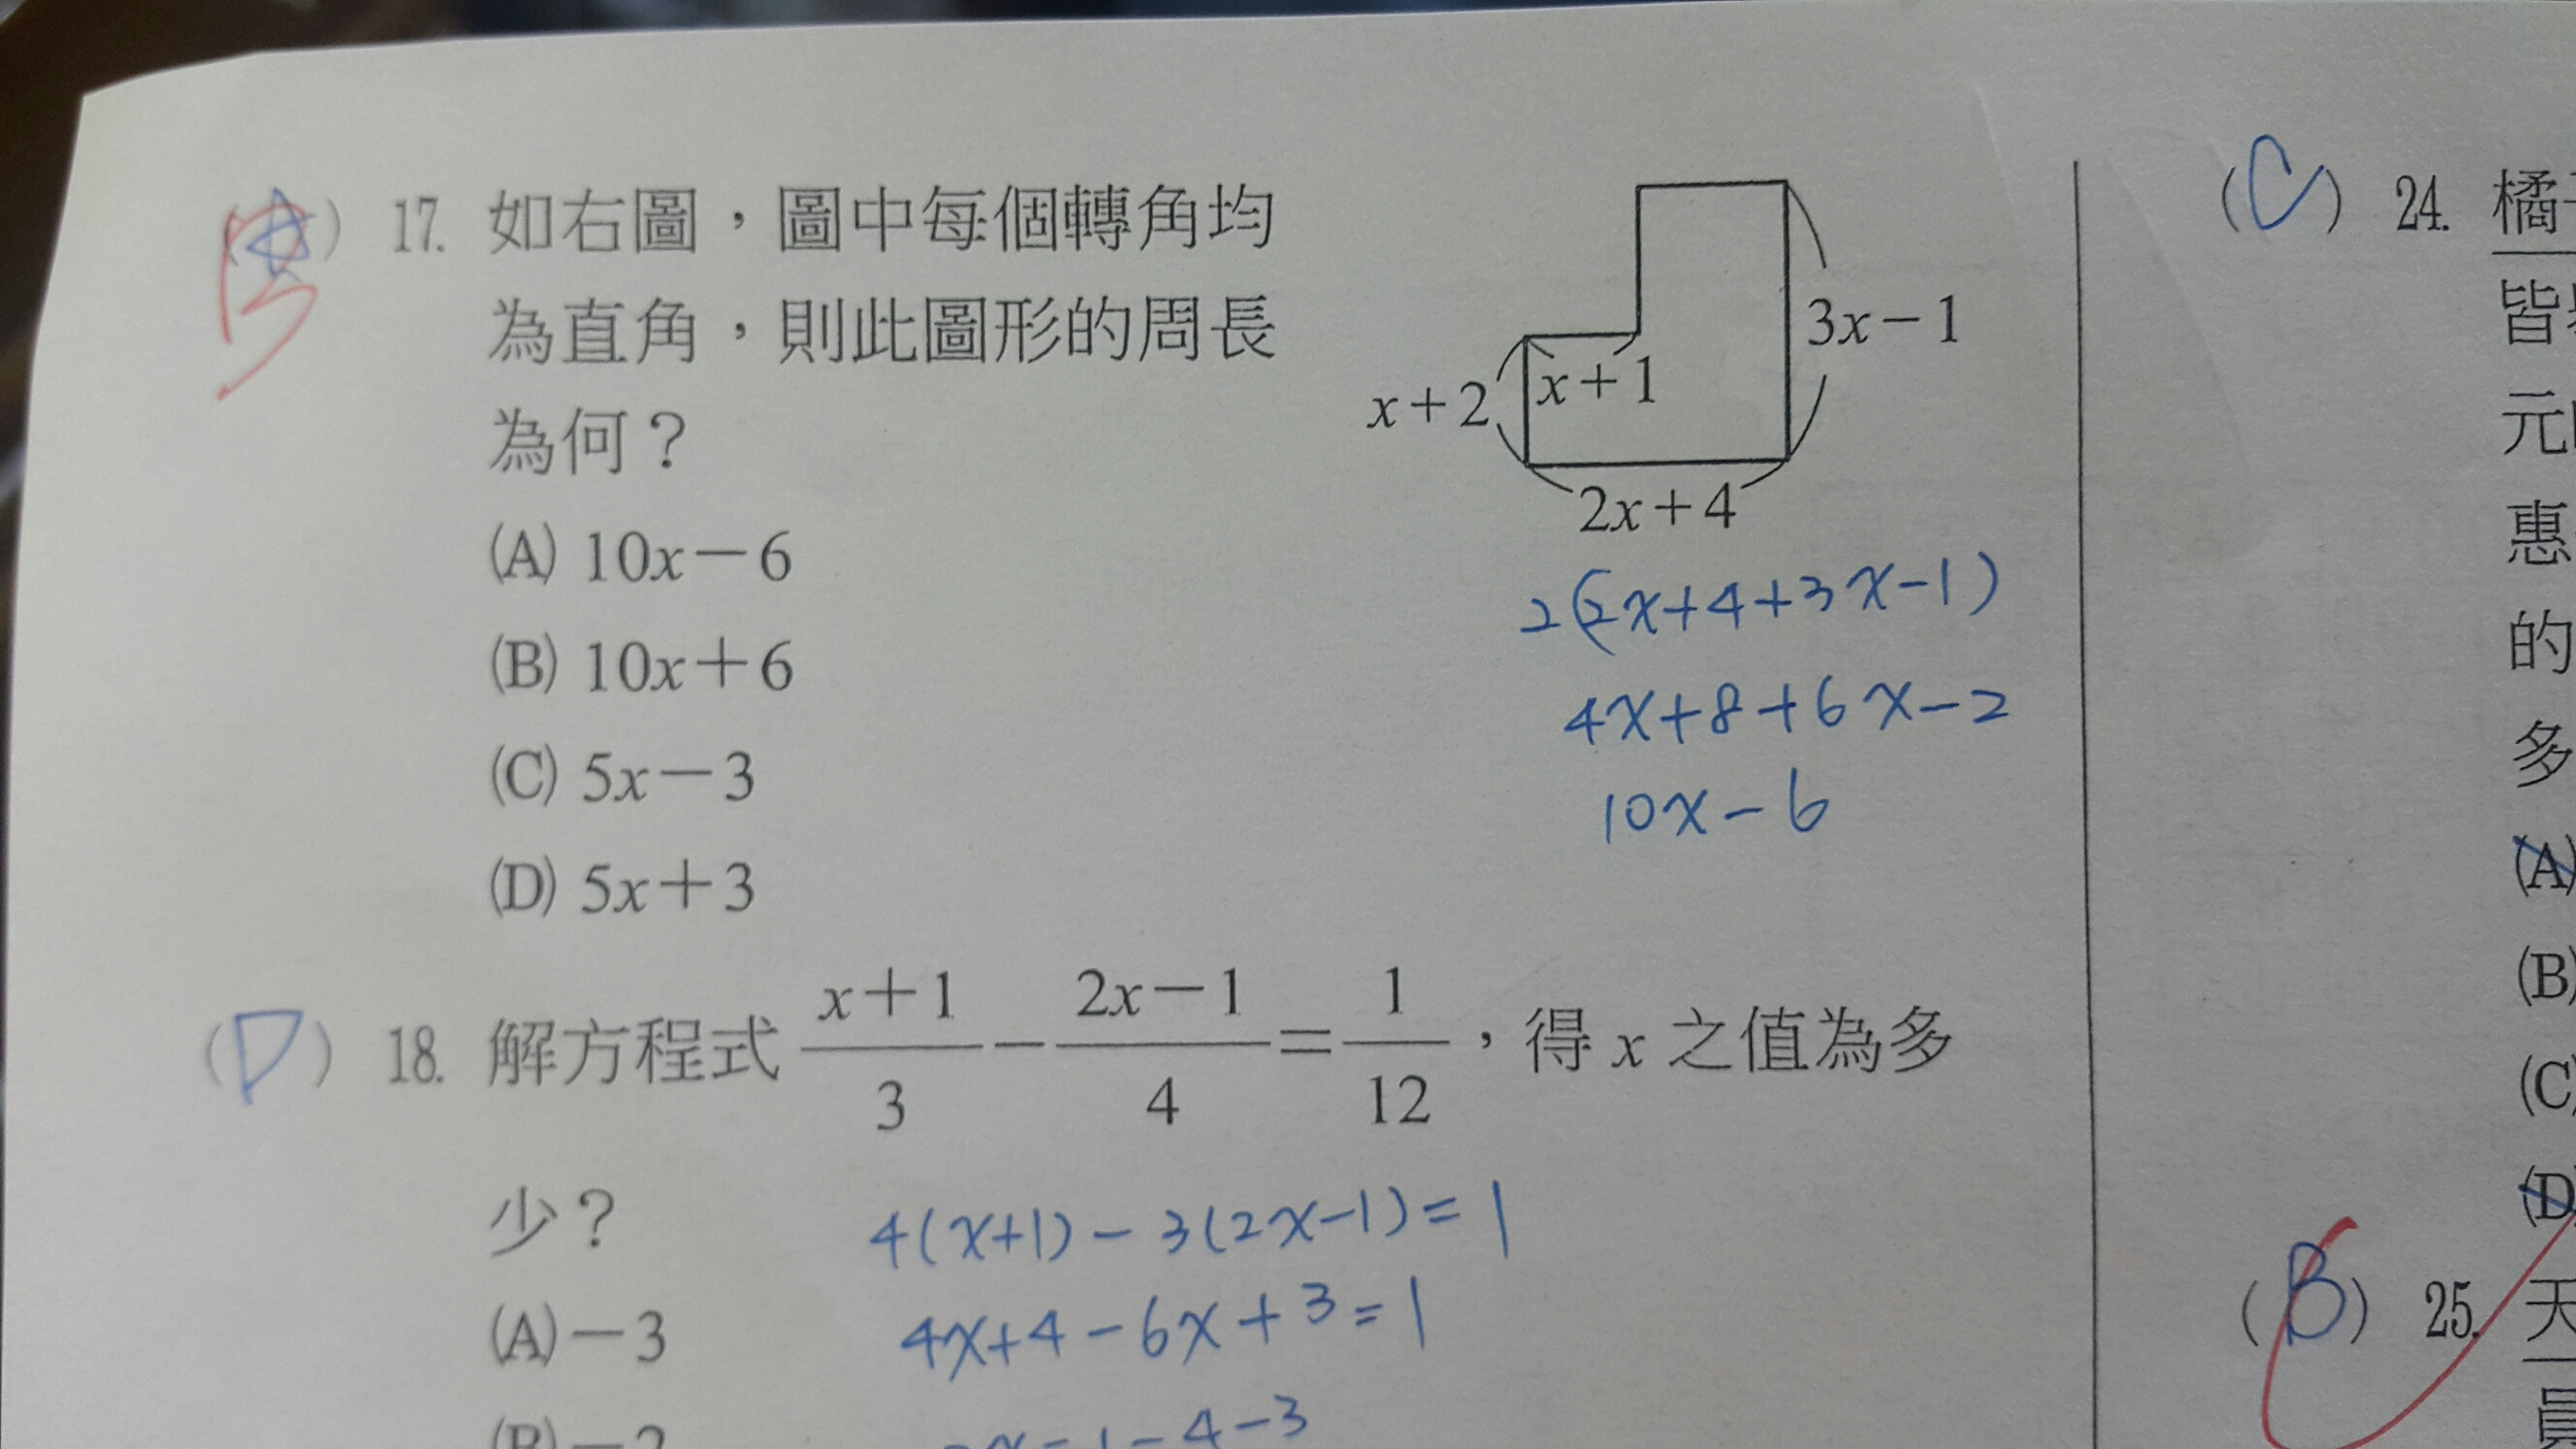 (A) 17. 如右圖，圖中每個轉角均
B
為直角，則此圖形的周長
為何？
(A) 10x－6
(B) 10x＋6
(C) 5x－3
(D) 5x＋3
3x－1
x＋1
x＋2
2x＋4
2(2x+4+3x-1)
4x+8+6x-2
10x-6
(D) 18. 解方程式 (x＋1)/3－(2x－1)/4＝1/12，得 x 之值為多
少？
4(x+1)-3(2x-1)=1
(A)－3
4x+4-6x+3=1
(C) 24.
皆
元
惠
的
多
(A)
(B)
(C)
(D)
(B) 25. 天
員